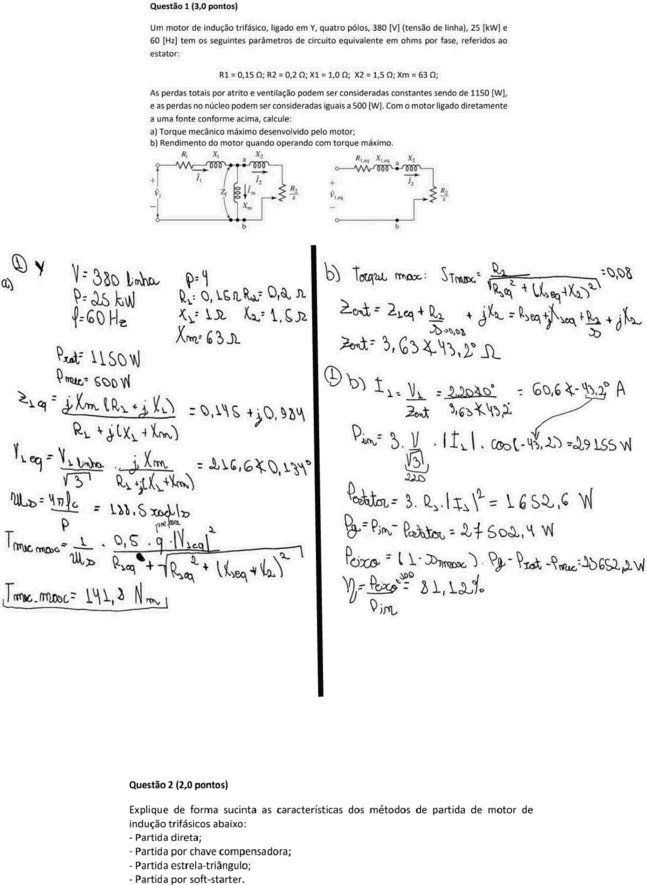 Questão 1 (3,0 pontos)
Um motor de indução trifásico, ligado em Y, quatro pólos, 380 [V] (tensão de linha), 25 [kW] e
60 [Hz] tem os seguintes parâmetros de circuito equivalente em ohms por fase, referidos ao
estator:
R1 = 0,15 Ω; R2 = 0,2 Ω; X1 = 1,0 Ω;  X2 = 1,5 Ω; Xm = 63 Ω;
As perdas totais por atrito e ventilação podem ser consideradas constantes sendo de 1150 [W],
e as perdas no núcleo podem ser consideradas iguais a 500 [W]. Com o motor ligado diretamente
a uma fonte conforme acima, calcule:
a) Torque mecânico máximo desenvolvido pelo motor;
b) Rendimento do motor quando operando com torque máximo.
R1 X1 a X2 Î1 Î2 V̂1 Zf Îm Xm R2/s b
R1,eq X1,eq a X2 Î2 V̂1,eq R2/s b
① Y
a)
V = 380 linha p = 4
P = 25 kW R1 = 0,15 Ω R2 = 0,2 Ω
f = 60 Hz X1 = 1 Ω X2 = 1,5 Ω
Xm = 63 Ω
Prot = 1150 W
Pnuc = 500 W
Z1eq = jXm (R1 + jX1) / R1 + j(X1 + Xm) = 0,145 + j0,984
V1eq = V1 linha / √3 · jXm / R1 + j(X1 + Xm) = 216,6 ∡ 0,134°
ωs = 4πfe / p = 188,5 rad/s
Tmec max = 1/ωs · 0,5 · q · |V1eq|² / R1eq + √R1eq² + (X1eq + X2)²
Tmec-max = 141,8 Nm
b) torque max: STmax = R2 / √R1eq² + (X1eq + X2)² = 0,08
Zent = Z1eq + R2/s + jX2 = R1eq + jX1eq + R2/s + jX2
Zent = 3,63 ∡ 43,2° Ω
① b) I1 = V1 / Zent = 220∡0° / 3,63∡43,2° = 60,6 ∡ -43,2° A
Pin = 3 · V/√3 · |I1| · cos(-43,2) = 29155 W
220
Pestator = 3 · R1 · |I1|² = 1652,6 W
Pg = Pin - Pestator = 27502,4 W
Peixo = (1 - smax) · Pg - Prot - Pnuc = 23652,2 W
η = Peixo / Pin = 81,12%
Questão 2 (2,0 pontos)
Explique de forma sucinta as características dos métodos de partida de motor de
indução trifásicos abaixo:
- Partida direta;
- Partida por chave compensadora;
- Partida estrela-triângulo;
- Partida por soft-starter.